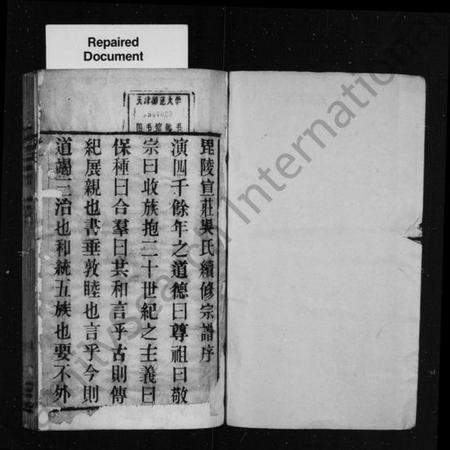 Repaired
Document
天津師範大學
图书馆藏書
毘陵宣莊吳氏續修宗譜序
演四千餘年之道德曰尊祖曰敬
宗曰收族抱二十世紀之主義曰
保種曰合羣曰共和言乎古則傳
紀展親也書垂敦睦也言乎今則
道竭三治也和統五族也要不外
FamilySearch International